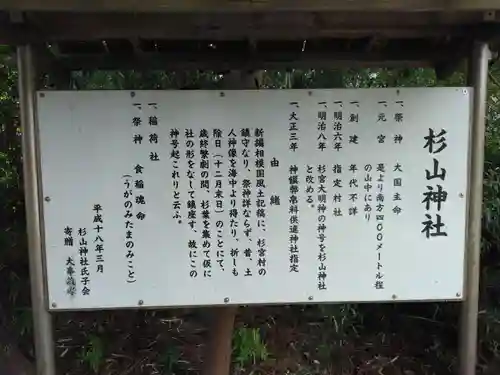 杉山神社
一、祭神　大国主命
一、元宮　是より南方四〇〇メートル程
の山中にあり
一、創建　年代不詳
一、明治六年　指定村社
一、明治八年　杉宮大明神の神号を杉山神社
と改める。
一、大正三年　神饌幣帛料供進神社指定
由緒
新編相模国風土記稿に、杉宮村の
鎮守なり、祭神詳ならず、昔、土
人神像を海中より得たり、折しも
除日（十二月末日）のことにて、
歳終繁劇の間、杉葉を集めて仮に
社の形をなして鎮座す、故にこの
神号起これりと云ふ。
一、稲荷社
一、祭神　倉稲魂命
（うがのみたまのみこと）
平成十八年三月
杉山神社氏子会
寄贈